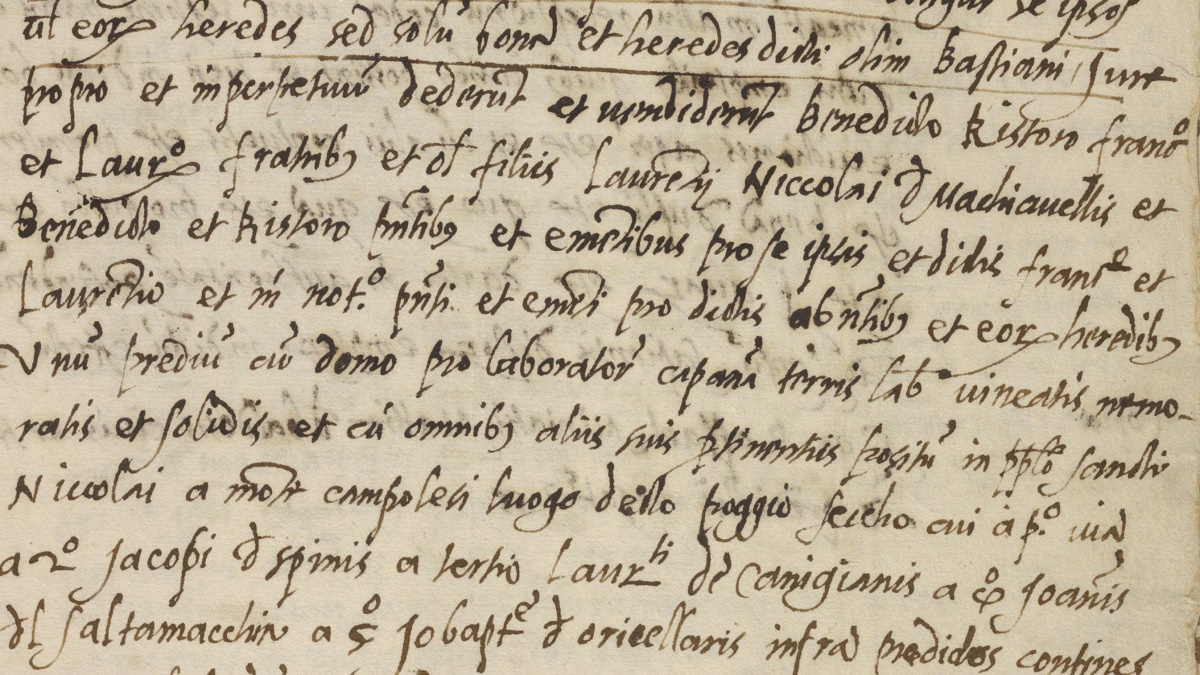 se ipsos
vel eorꝝ heredes sed solū bona et heredes dicti olim Bastiani Jure
proprio et inperpetuum dederūt et vendiderūt Benedicto Ristoro francᵒ
et Laurᵒ fratribꝫ et ol filiis Laurētij Niccolai đ Machiavellis et
Benedicto et Ristoro pn̄tibꝫ et emētibus pro se ipsis et dictis francᵒ et
Laurētio et m̄ notᵒ pn̄ti et emēti pro dictis abn̄tibꝫ et eorꝝ heredibꝫ
Unū prediū cū domo pro laboratorē capanā terris lab. vineatis nemo-
ratis et solidis et cū omnibꝫ aliis suis ptinentiis positū in ppło sancti
Niccolai a mōte campolesi luogo decto poggio seccho cui a pᵒ via
a 2ᵒ Jacopi đ spinis a tertio Laurᵗⁱ de Canigianis a 4ᵒ Joānis
đl saltamacchin a 5ᵒ Jobaptᵉ đ oricellaris infra predictos confines